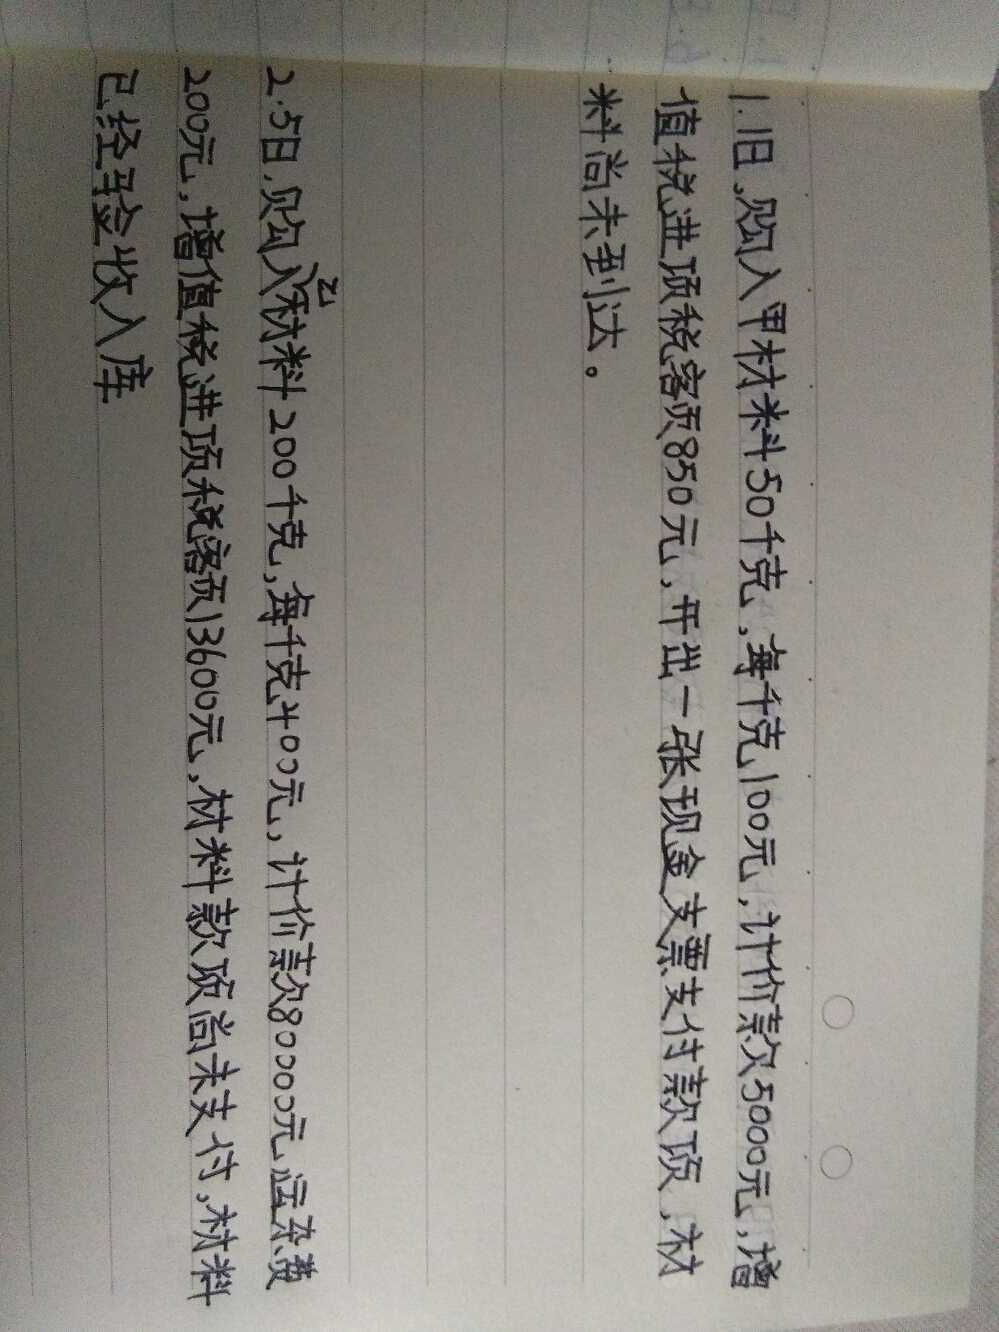 1.1日,购入甲材料50千克,每千克100元,计价款5000元,增
值税进项税额850元,开出一张现金支票支付款项,材
料尚未到达。
2.5日,购入乙材料200千克,每千克400元,计价款80000元运杂费
200元,增值税进项税额13600元,材料款项尚未支付,材料
已经验收入库